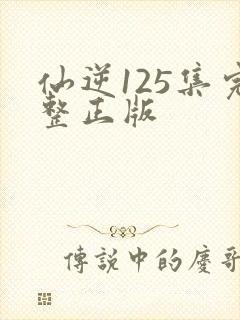 仙逆125集完
整正版
傳説中的慶哥